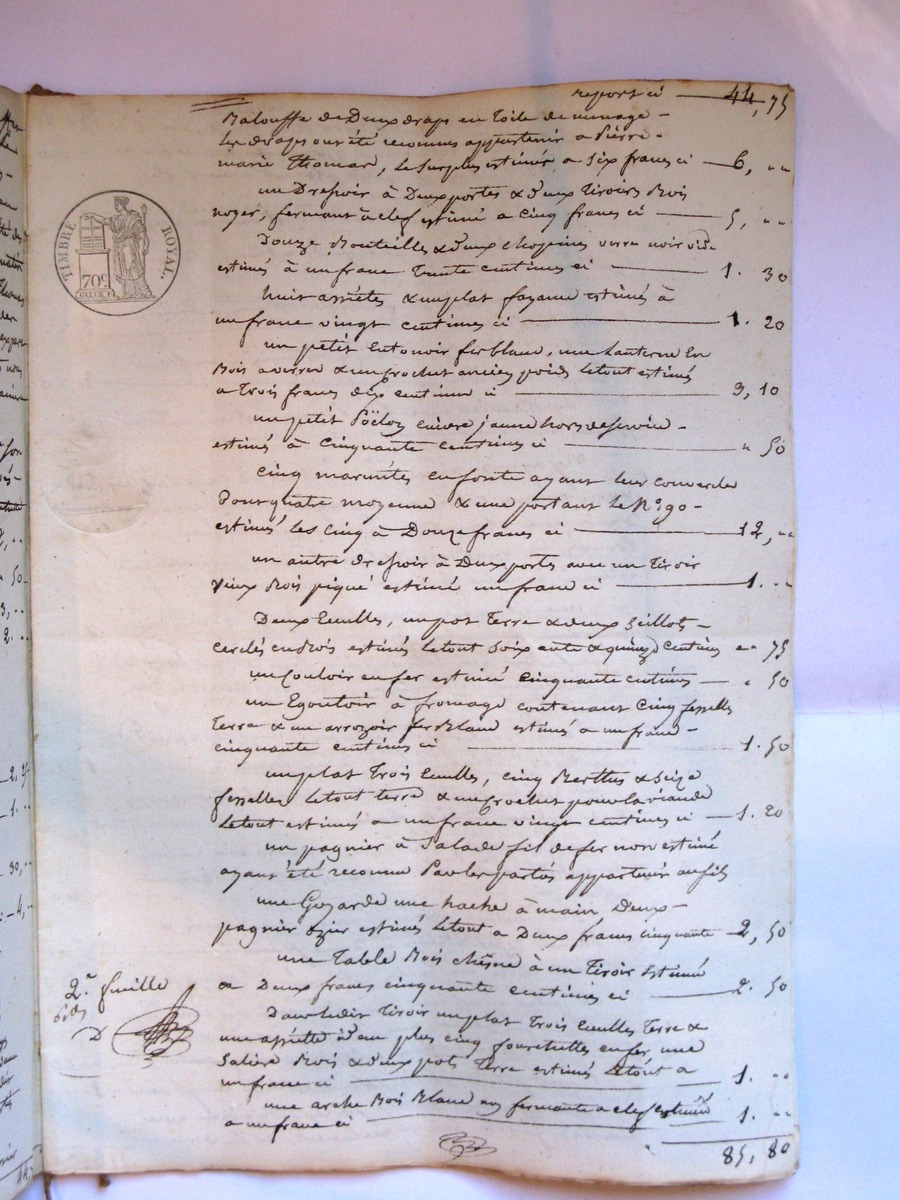 report ci — 44, 75
Balouffe de Deux draps en toile de menage —
les draps ont été reconnus appartenir a Pierre —
marie Thomard, le surplus estimés a six francs ci — 6, ..
un Dressoir à Deux portes & deux Tiroirs Bois
noyer, fermant à clef estimé a cinq francs ci — 5, ..
Douze Bouteilles & deux chopines verre noir vide
estimés à un franc Trente centimes ci — 1. 30
huit assiettes & un plat fayance estimés à
un franc vingt centimes ci — 1. 20
un petit Entonoir fer blanc, une Lanterne En
Bois a verre & un crochet ancien poids le tout estimés
a Trois francs dix centimes ci — 3, 10
un petit Poëlon cuivre jaune hors de service —
estimés à cinquante centimes ci — " 50
Cinq marmites en fonte ayant leur couvercle
Dont quatre moyenne & une portant le N°
estimés les cinq à Douze francs ci — 12, ..
un autre dressoir à Deux portes avec un Tiroir
vieux Bois piqué estimé un franc ci — 1. ..
Deux Ecuelles, un pot Terre & deux seillots —
cerclés en Bois estimés le tout soixante & quinze centimes " 75
un Couloir en fer estimé cinquante centimes — " 50
un Egoutoir à fromage contenant cinq fesselles
Terre & un arrozoir fer Blanc estimés a un franc —
cinquante centimes ci — 1. 50
un plat Trois Ecuelles, cinq Berthes & seize
fesselles le tout terre & un crochet pour la viande
le tout estimés a un franc vingt centimes ci — 1. 20
un pagnier à salade fil de fer non estimé
ayant été reconnu Par les parties appartenir au fils
une Goyarde une hache à main, Deux —
pagnier ozier estimés le tout a Deux francs cinquante — 2, 50
une Table Bois chêsne à un Tiroir estimée
a Deux francs cinquante centimes ci — 2. 50
Dans ledit Tiroir un plat Trois Ecuelles Terre &
une assiette idem plus cinq fourchettes en fer, une
Saliere Bois & deux pots Terre estimés le tout a
un franc ci — 1. ..
une arche Bois Blanc fermante a clef estimée
a un franc ci — 1. ..
85, 80
TIMBRE ROYAL.
70c
2e feuille